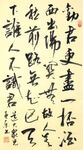 勸君更盡一杯酒
西出陽關無故人莫
愁前路無知己天
下誰人不識君